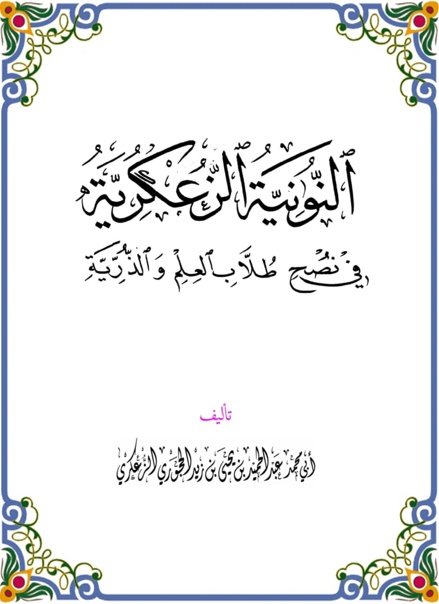 النُّونِيَّةُ الزُّعْكُرِيَّةُ
فِي نُصْحِ طُلَّابِ العِلْمِ وَالذُّرِّيَّةِ
تأليف
أبي محمد عبد الحميد بن يحيى بن زيد الحجوري الزعكري